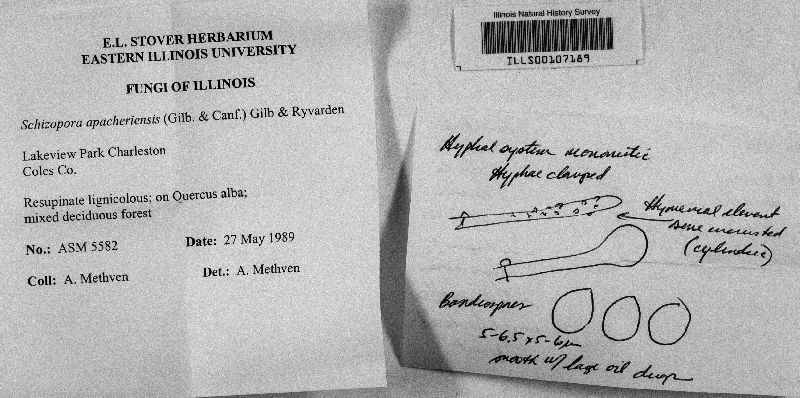 E.L. STOVER HERBARIUM
EASTERN ILLINOIS UNIVERSITY
FUNGI OF ILLINOIS
Schizopora apacheriensis (Gilb. & Canf.) Gilb & Ryvarden
Lakeview Park Charleston
Coles Co.
Resupinate lignicolous; on Quercus alba;
mixed deciduous forest
No.: ASM 5582 Date: 27 May 1989
Coll: A. Methven Det.: A. Methven
Illinois Natural History Survey
ILLS00107189
Hyphal system monomitic
Hyphae clamped
Hymenial element
some encrusted
(cylindric)
Basidiospores
5-6.5 x 5-6µm
smooth w/ large oil drop